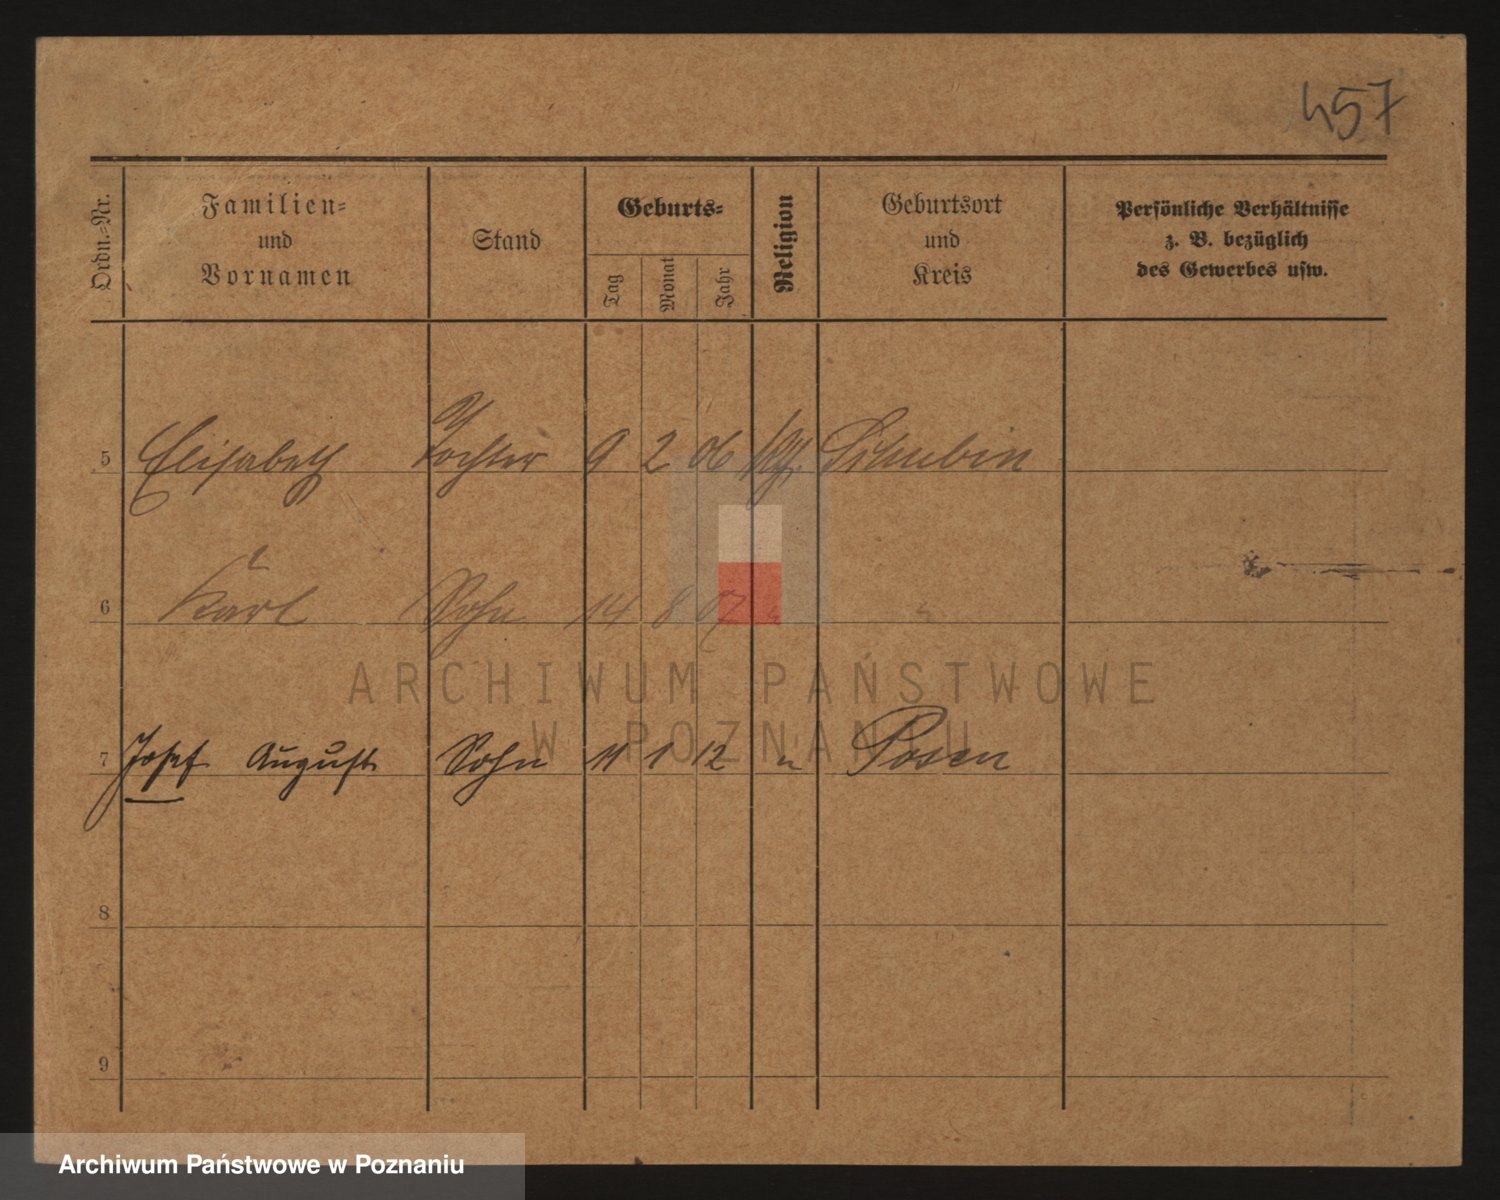 457
Ordn.-Nr.
Familien-
und
Vornamen
Stand
Geburts-
Tag
Monat
Jahr
Religion
Geburtsort
und
Kreis
Persönliche Verhältnisse
z. B. bezüglich
des Gewerbes usw.
5 Elisabeth Tochter 9 2 06 Schubin
6 Karl Sohn 14 8 07 " "
ARCHIWUM PAŃSTWOWE
W POZNANIU
7 Josef August Sohn 11 1 12 " Posen
8
9
Archiwum Państwowe w Poznaniu